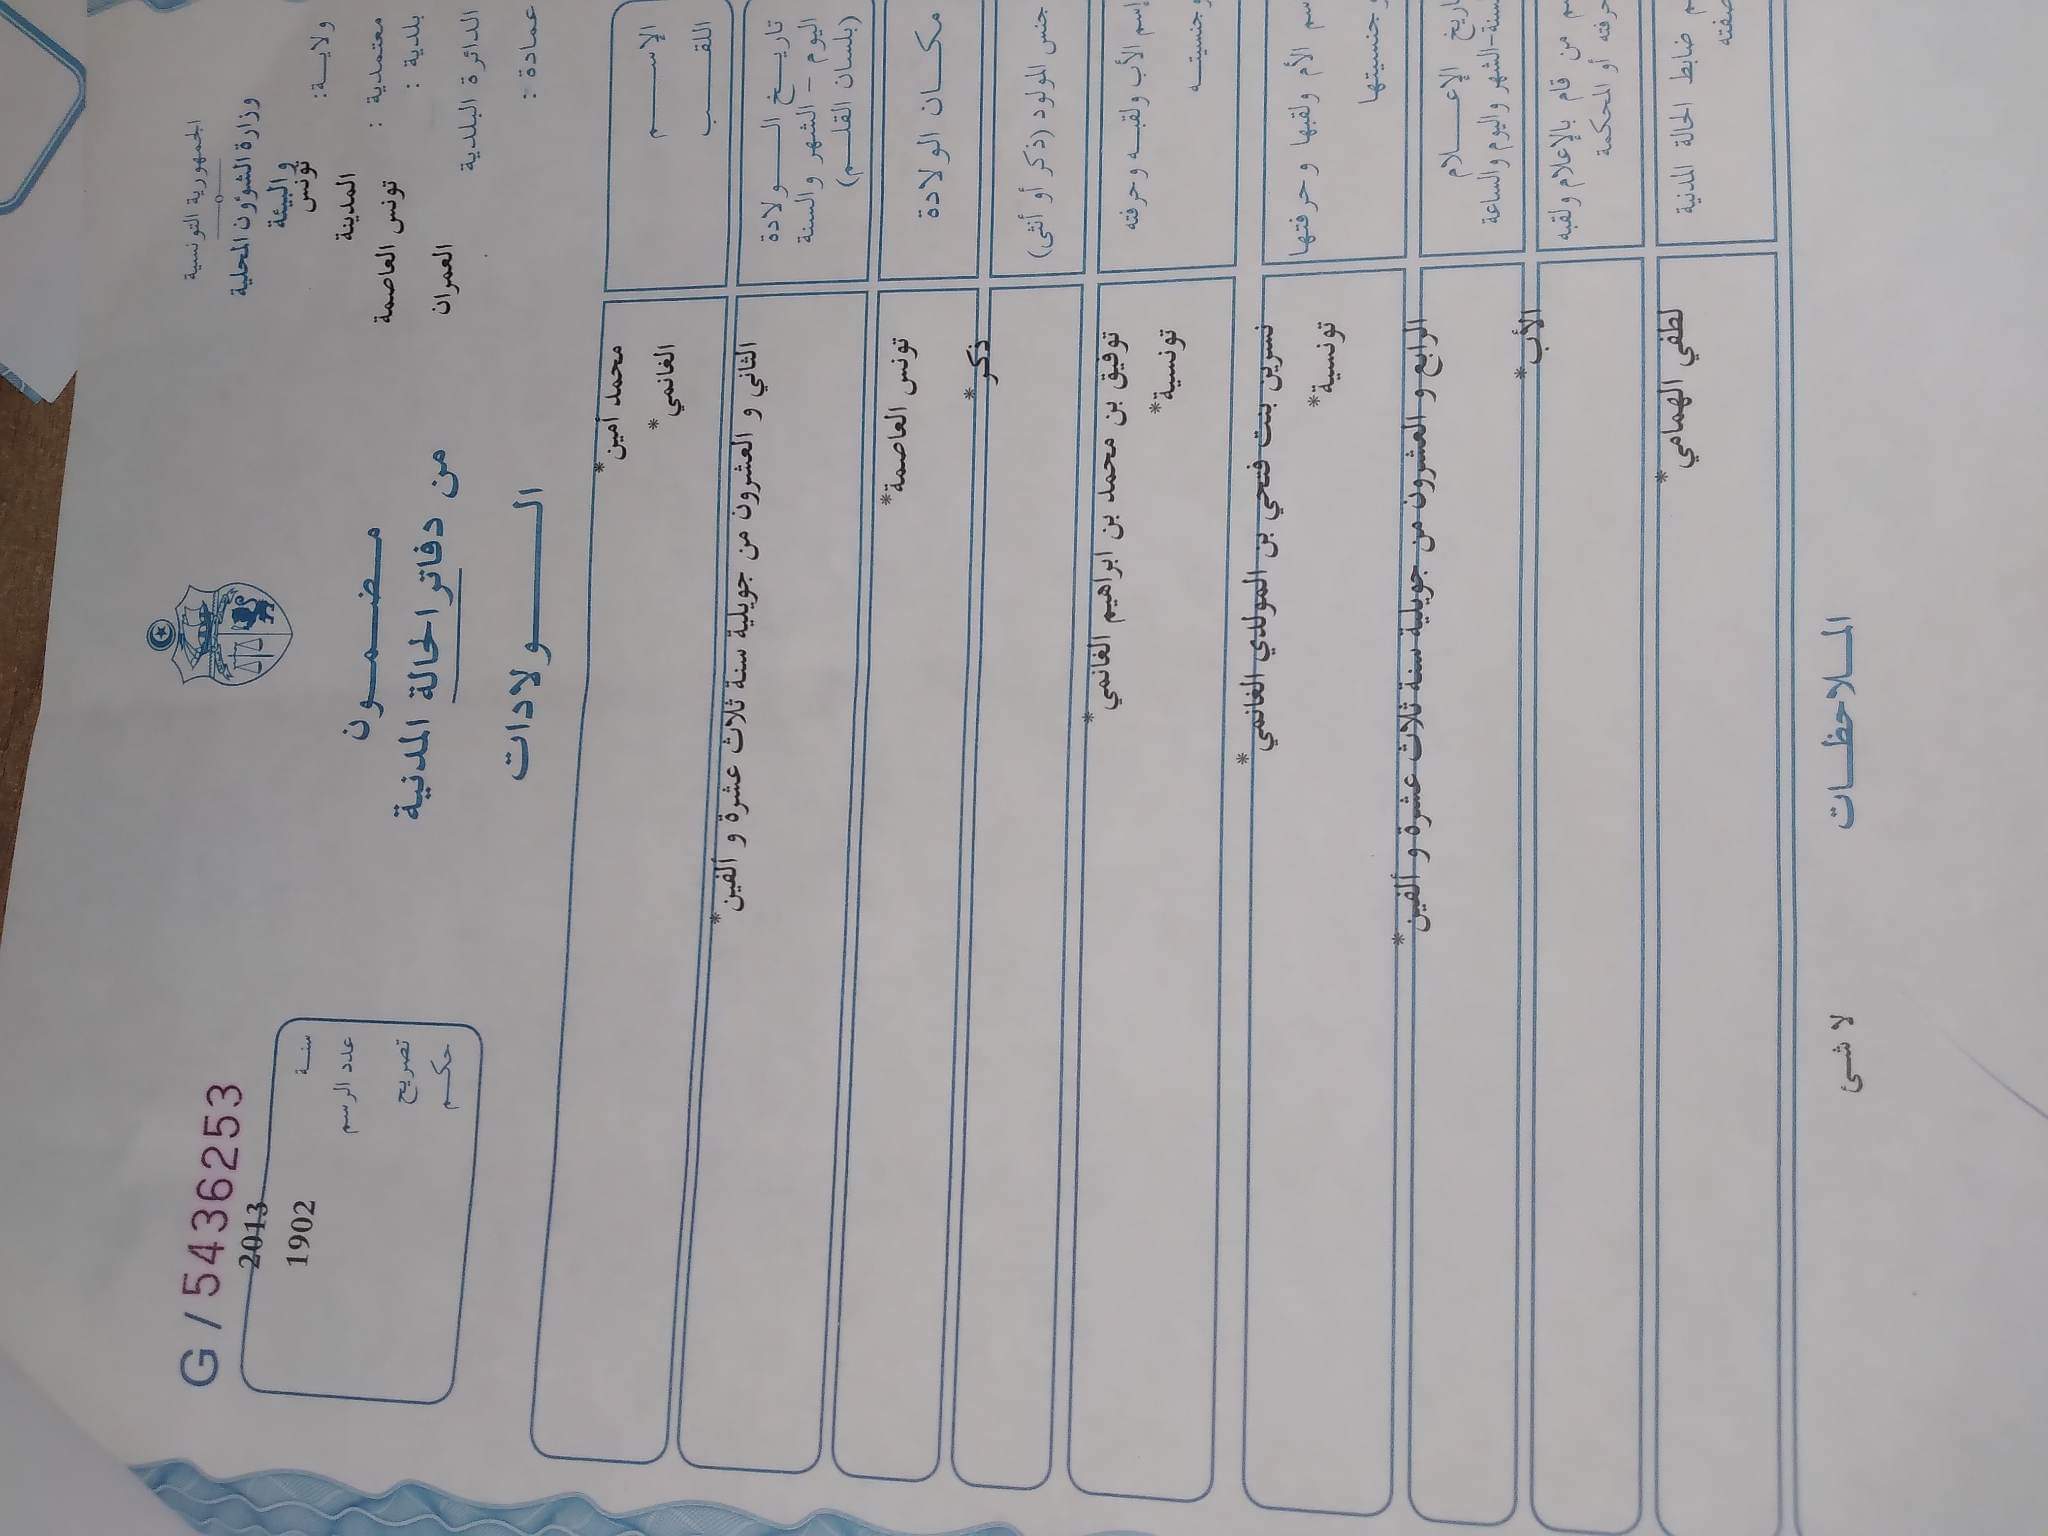 الجمهورية التونسية
وزارة الشؤون المحلية
و البيئة
ولاية: تونس
معتمدية : المدينة
بلدية : تونس العاصمة
الدائرة البلدية العمران
عمادة :
G / 5436253
سنة 2013
عدد الرسم 1902
تصريح
حكم
مضمون
من دفاتر الحالة المدنية
الولادات
الإسم محمد أمين*
اللقب الغانمي*
تاريخ الولادة الثاني و العشرون من جويلية سنة ثلاث عشرة و ألفين*
اليوم - الشهر والسنة
(بلسان القلم)
مكان الولادة تونس العاصمة*
جنس المولود (ذكر أو أنثى) ذكر*
إسم الأب ولقبه وحرفته توفيق بن محمد بن ابراهيم الغانمي*
وجنسيته تونسية*
الأم ولقبها وحرفتها نسرين بنت فتحي بن المولدي الغانمي*
وجنسيتها تونسية*
الإعلام الرابع و العشرون من جويلية سنة ثلاث عشرة و ألفين*
السنة-الشهر واليوم والساعة
من قام بالإعلام ولقبه الأب*
أو المحكمة
ضابط الحالة المدنية لطفي الهمامي*
الملاحظات
لا شئ